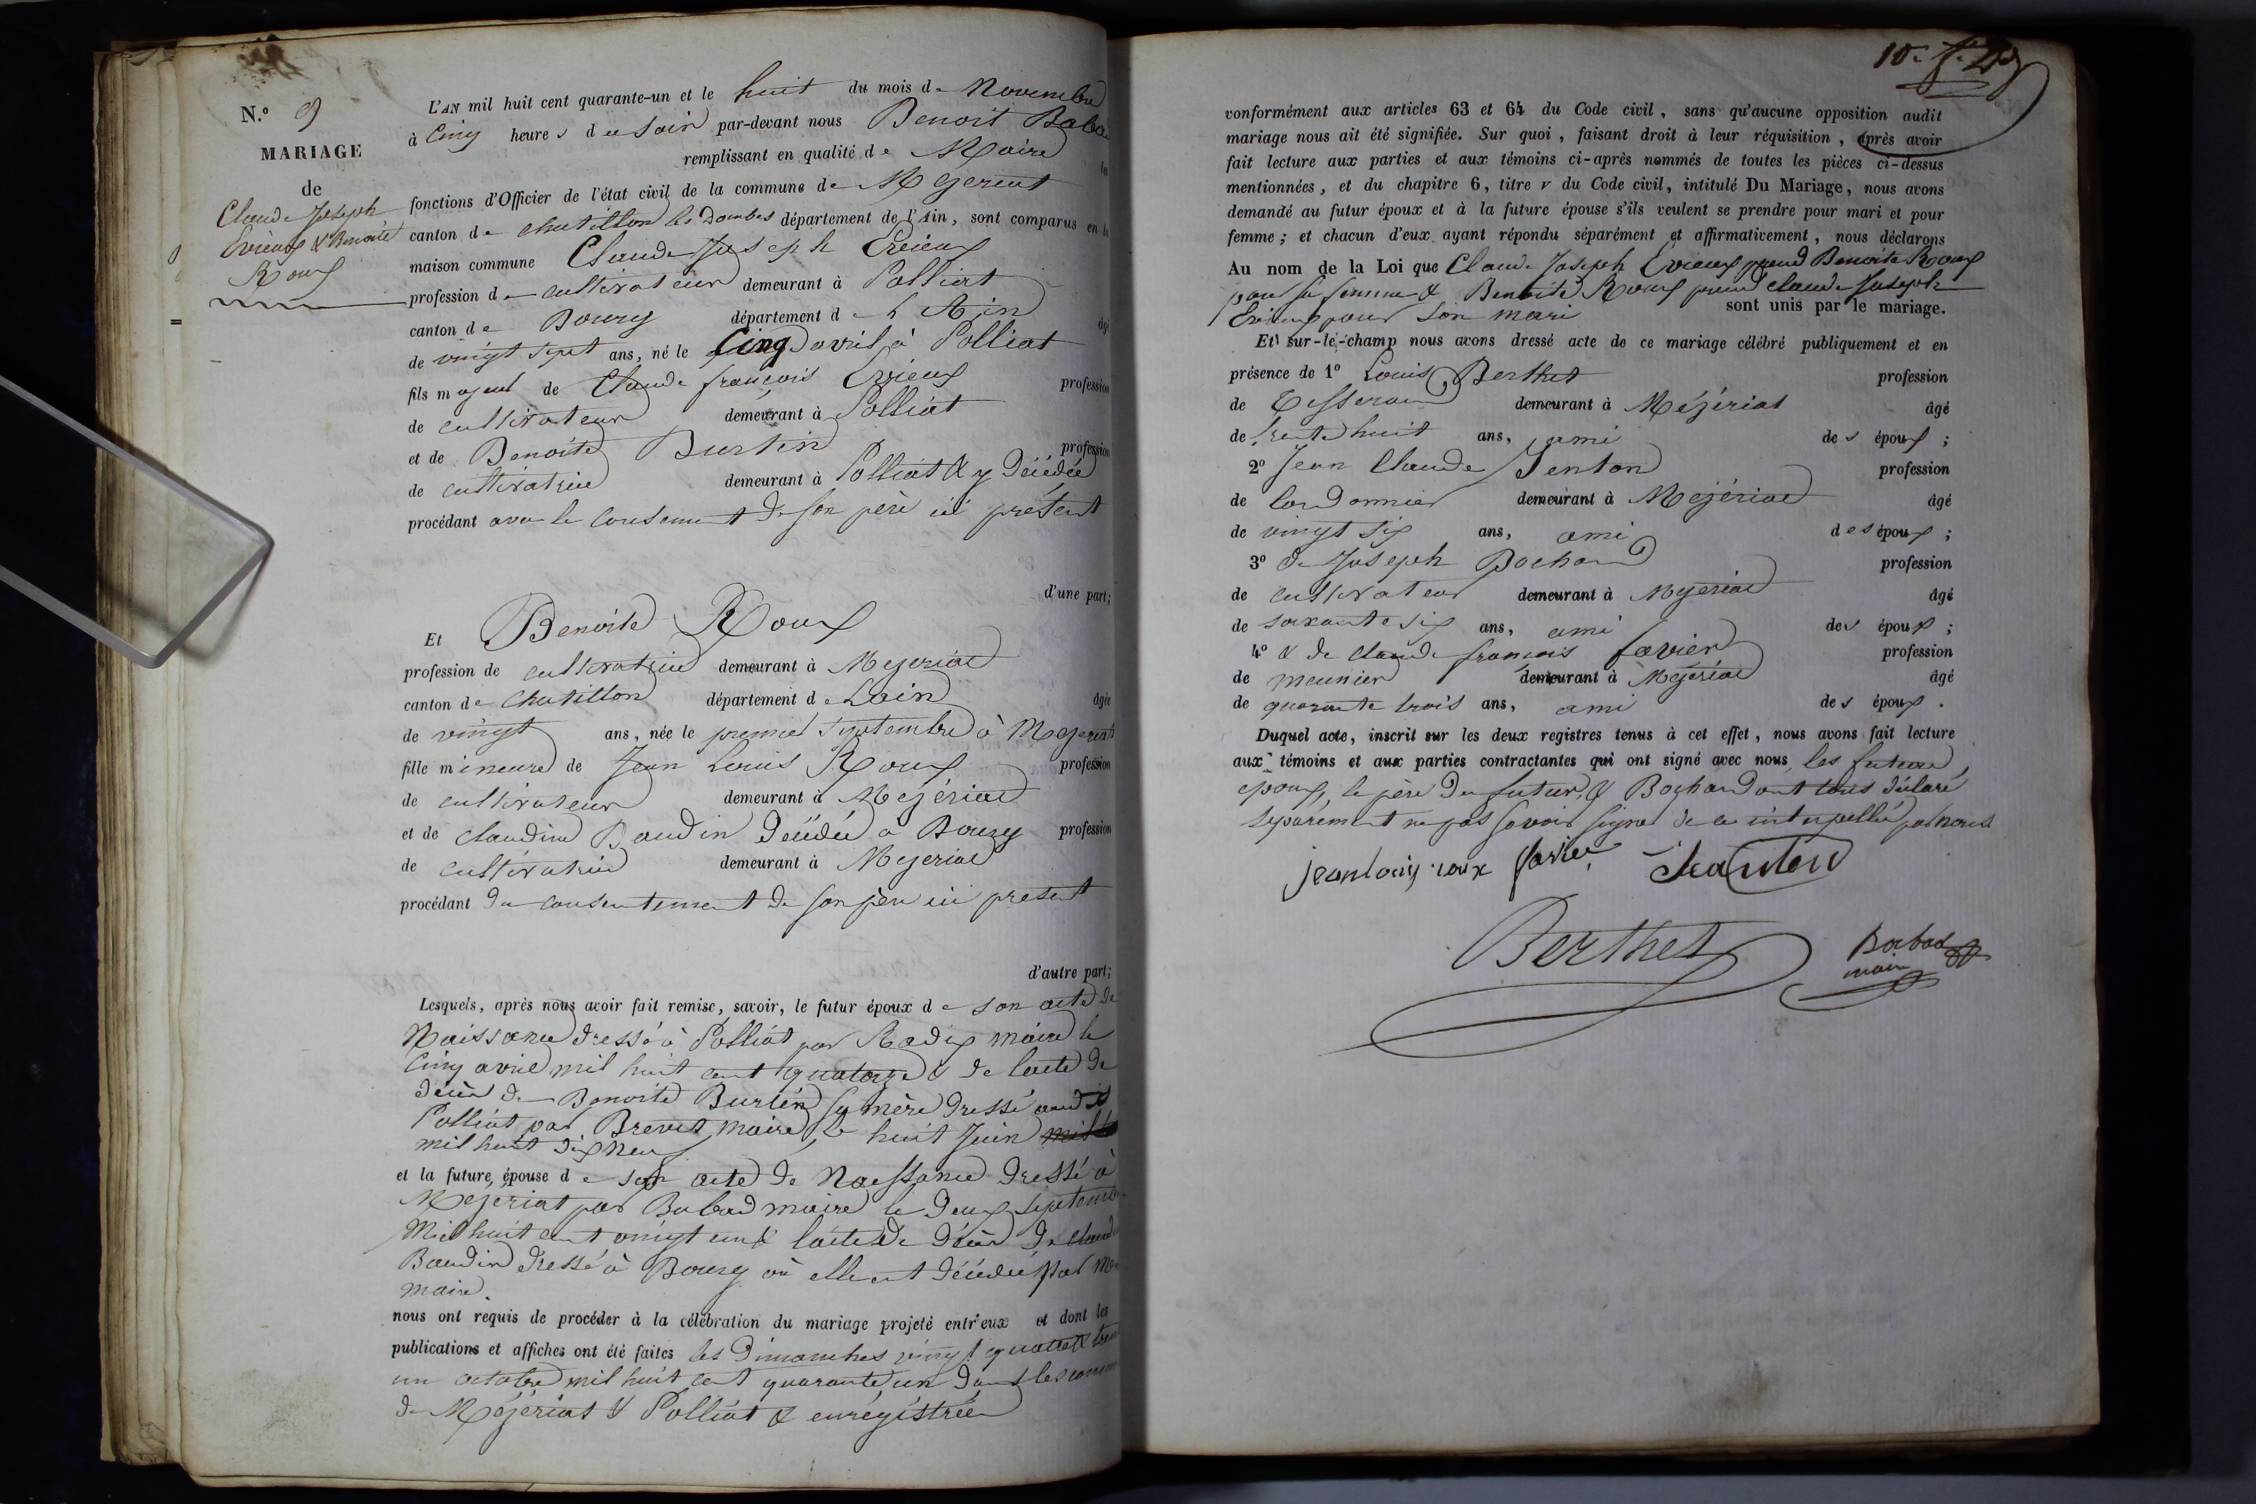 N.º 9
MARIAGE
de
Claude Joseph
Evieux & Benoite
Roux
L'AN mil huit cent quarante-un et le huit du mois de Novembre
à Cinq heures du Soir par-devant nous Benoit Babad
remplissant en qualité de Maire les
fonctions d'Officier de l'état civil de la commune de Mezeriat
canton de chatillon les Dombes département de l'Ain, sont comparus en la
maison commune Claude Joseph Evieux
profession de cultivateur demeurant à Polliat
canton de Bourg département d L Ain âgé
de vingt sept ans, né le Cinq avril à Polliat
fils majeur de Claude françois Evieux profession
de cultivateur demeurant à Polliat
et de Benoite Burtin profession
de cultivatrice demeurant à Polliat & y décédée
procédant avec le consement de son père ici présent
d'une part;
Et Benoite Roux
profession de cultivatrice demeurant à Mezeriat
canton de Chatillon département de Lain âgée
de vingt ans, née le premier septembre à Mezeriat
fille mineure de Jean Louis Roux profession
de cultivateur demeurant à Mézériat
et de claudine Baudin décédée à Bourg profession
de cultivatrice demeurant à Mezeriat
procédant du consentement de son père ici present
d'autre part;
Lesquels, après nous avoir fait remise, savoir, le futur époux de son acte de
Naissance dressé à Polliat par Radix maire le
Cinq avril mil huit cent quatorze & de lacte de
décès de Benoite Burtin sa mère dressé audit
Polliat par Brevet maire, le huit Juin
mil huit dix neuf
et la future épouse de son acte de Naissance dressé à
Mezeriat par Babad maire le deux septembre
Mil huit cent vingt un & lacte de décès de claudine
Baudin dressé à Bourg où elle est décédée par
maire.
nous ont requis de procéder à la célébration du mariage projeté entr'eux et dont les
publications et affiches ont été faites les Dimanches vingt quatre & trente
un octobre mil huit cent quarante un dans les communes
de Mézériat & Polliat & enrégistrée
10.
conformément aux articles 63 et 64 du Code civil, sans qu'aucune opposition audit
mariage nous ait été signifiée. Sur quoi, faisant droit à leur réquisition, après avoir
fait lecture aux parties et aux témoins ci-après nommés de toutes les pièces ci-dessus
mentionnées, et du chapitre 6, titre v du Code civil, intitulé Du Mariage, nous avons
demandé au futur époux et à la future épouse s'ils veulent se prendre pour mari et pour
femme; et chacun d'eux ayant répondu séparément et affirmativement, nous déclarons
Au nom de la Loi que Claude Joseph Evieux prend Benoite Roux
pour sa femme & Benoite Roux prend claude Joseph
Evieux pour son mari sont unis par le mariage.
Et sur-le-champ nous avons dressé acte de ce mariage célébré publiquement et en
présence de 1º Louis Berthet profession
de Tisserand demeurant à Mézériat âgé
de trente huit ans, ami des époux;
2º Jean Claude Janton profession
de Cordonnier demeurant à Mezériat âgé
de vingt six ans, ami des époux;
3º de Joseph Bochard profession
de cultivateur demeurant à Mezeriat âgé
de soixante six ans, ami des époux;
4º & de Claude françois favier profession
de meunier demeurant à Mézériat âgé
de quarante trois ans, ami des époux.
Duquel acte, inscrit sur les deux registres tenus à cet effet, nous avons fait lecture
aux témoins et aux parties contractantes qui ont signé avec nous, les futurs
époux, le père du futur, & Bochard ont tous déclaré
séparément ne pas savoir signer de ce interpellé par nous
jeanlouis roux favier Janton
Berthet Babad
maire